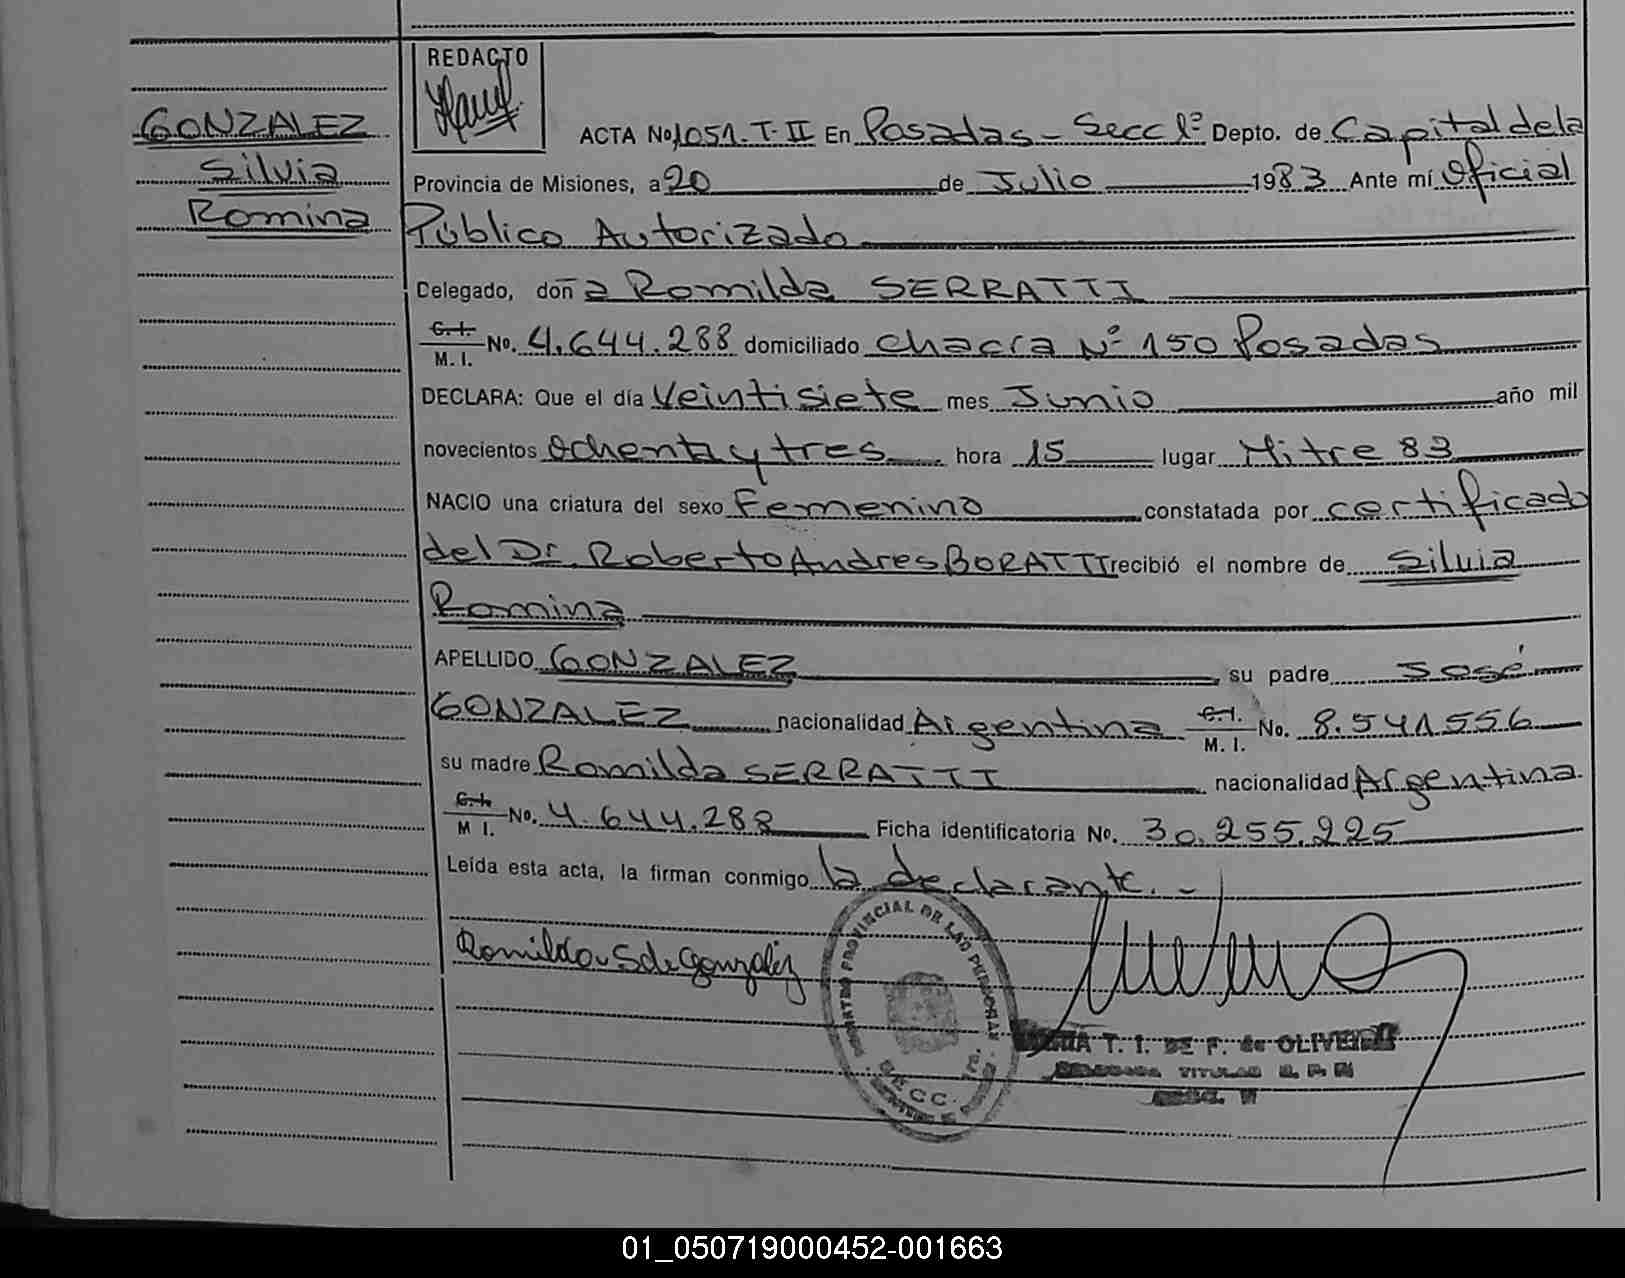 GONZALEZ
Silvia
Romina
REDACTO
ACTA No. 1051. T-II En Posadas - Secc 1º Depto. de Capital de la
Provincia de Misiones, a 20 de Julio 1983 Ante mí Oficial
Público Autorizado
Delegado, doña Romilda SERRATTI
C.I.
M. I. No. 4.644.288 domiciliado Chacra Nº 150 Posadas
DECLARA: Que el día Veintisiete mes Junio año mil
novecientos Ochenta y tres hora 15 lugar Mitre 83
NACIO una criatura del sexo Femenino constatada por certificado
del Dr. Roberto Andres BORATTI recibió el nombre de Silvia
Romina
APELLIDO GONZALEZ su padre José
GONZALEZ nacionalidad Argentina C.I.
M. I. No. 8.541556
su madre Romilda SERRATTI nacionalidad Argentina.
C.I.
M I. No. 4.644.288 Ficha identificatoria No. 30.255.225
Leída esta acta, la firman conmigo la declarante. -
Romilda S de González
PROVINCIAL DE LAS PERSONAS
SECC.
T. I. DE F. de OLIVEIRA
TITULAR
01_050719000452-001663